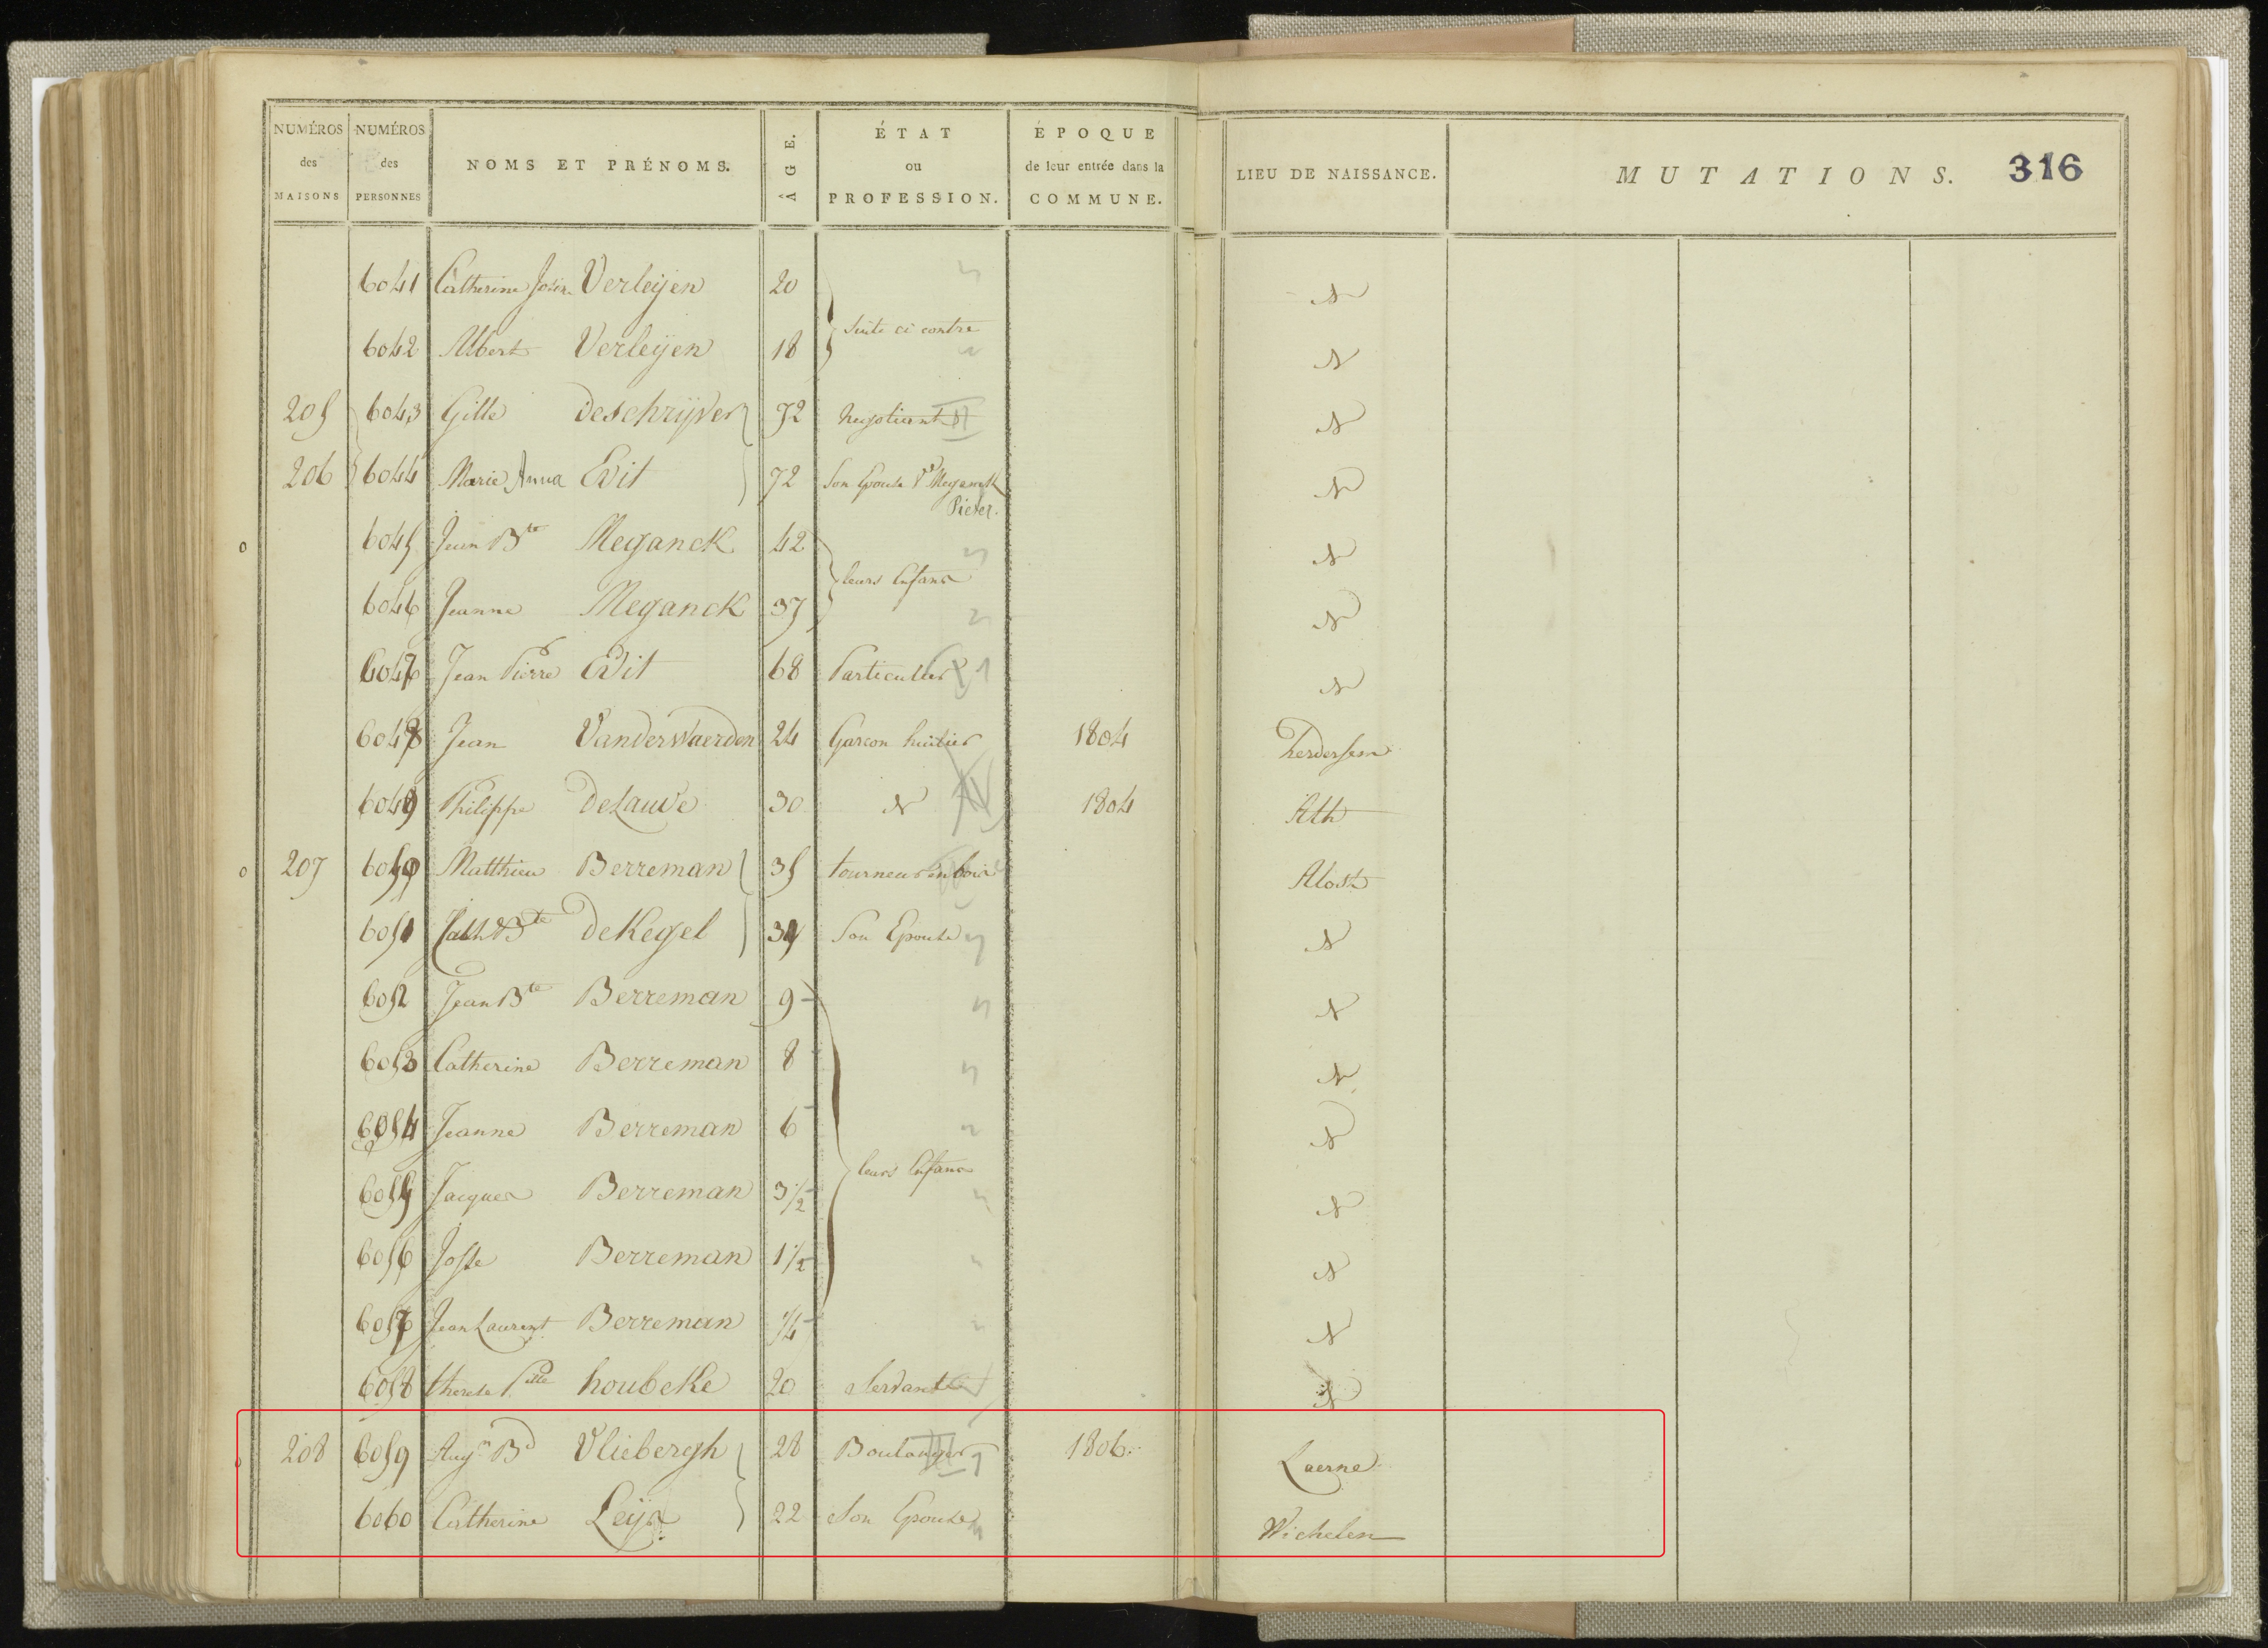 NUMÉROS des MAISONS NUMÉROS des PERSONNES NOMS ET PRÉNOMS. ÂGE. ÉTAT ou PROFESSION. ÉPOQUE de leur entrée dans la COMMUNE. LIEU DE NAISSANCE. MUTATIONS. 316
6041 Catherine Verleÿen 20
Suite ci contre
6042 Albert Verleÿen 18
205 6043 Gille Deschrÿver 72 Negotiant
206 6044 Marie Anna Evit 72 Son Epouse Vᵉ Meganck
Pieter.
6045 Jean Bte Meganck 42
leurs Enfans
6046 Jeanne Meganck 37
6047 Jean Pierre Evit 68 Particulier
6048 Jean Vanderwaerden 24 Garcon huilier 1804 herdersem
6049 Philippe DeLauve 30 1804 Ath
207 6050 Matthieu Berreman 35 tourneur en bois Alost
6051 Cath Bte DeKegel 34 Son Epouse
6052 Jean Bte Berreman 9
6053 Catherine Berreman 8
6054 Jeanne Berreman 6
leurs Enfans
6055 Jacques Berreman 3 1/2
6056 Josse Berreman 1 1/2
6057 Jean Laurent Berreman 1/4
6058 therese houbeke 20 Servante
208 6059 Augn Bd Vliebergh 28 Boulanger 1806. Laerne
6060 Catherine Leÿs 22 Son Epouse Wichelen